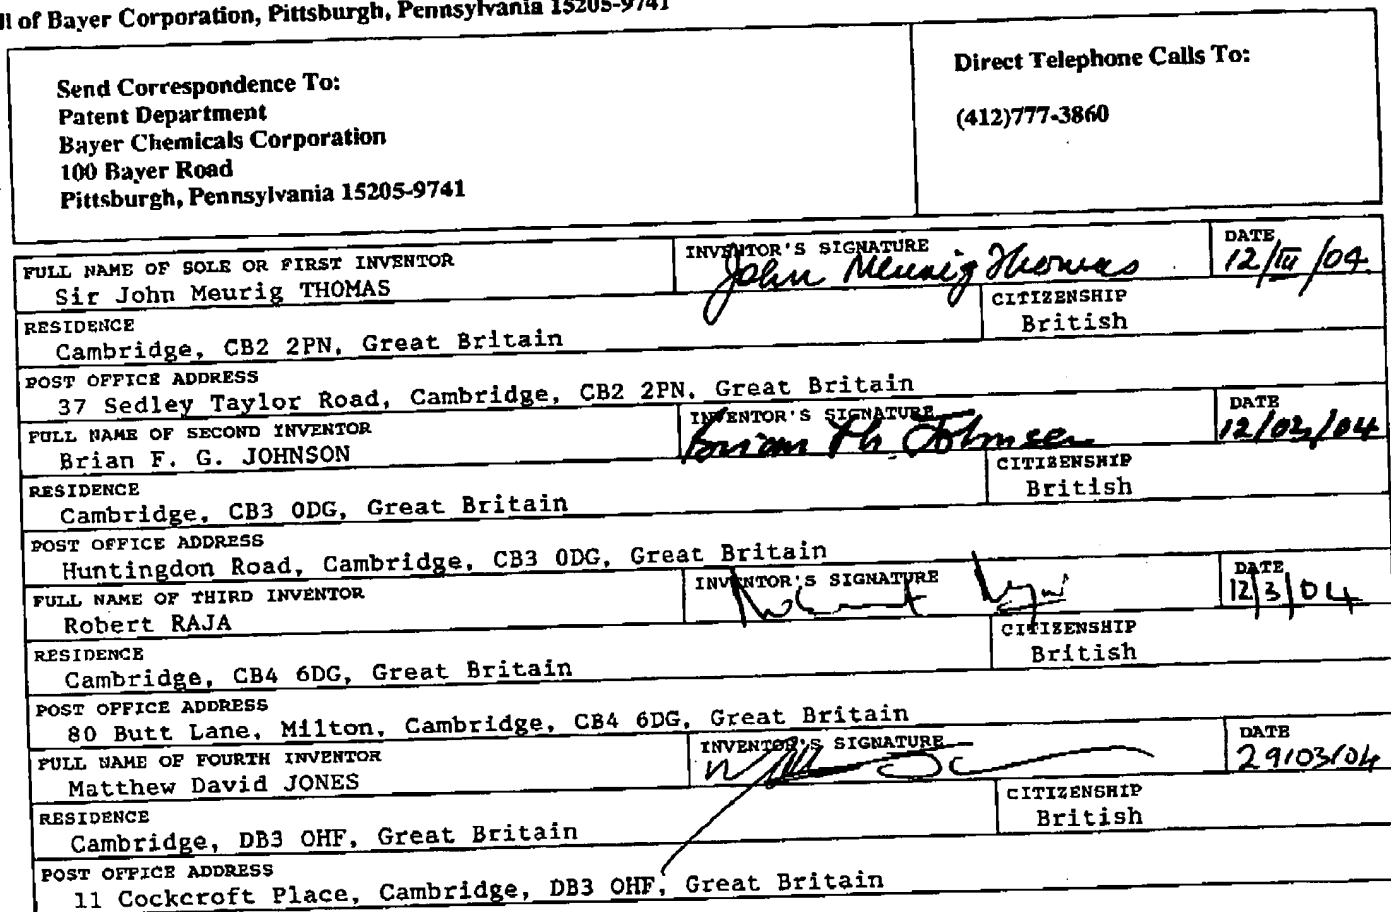 ll of Bayer Corporation, Pittsburgh, Pennsylvania 15205-9741
Send Correspondence To:
Patent Department
Bayer Chemicals Corporation
100 Bayer Road
Pittsburgh, Pennsylvania 15205-9741
Direct Telephone Calls To:
(412)777-3860
FULL NAME OF SOLE OR FIRST INVENTOR
Sir John Meurig THOMAS
INVENTOR'S SIGNATURE
John Meurig Thomas
DATE
12/III/04.
RESIDENCE
Cambridge, CB2 2PN, Great Britain
CITIZENSHIP
British
POST OFFICE ADDRESS
37 Sedley Taylor Road, Cambridge, CB2 2PN, Great Britain
FULL NAME OF SECOND INVENTOR
Brian F. G. JOHNSON
INVENTOR'S SIGNATURE
Brian Johnson
DATE
12/03/04
RESIDENCE
Cambridge, CB3 0DG, Great Britain
CITIZENSHIP
British
POST OFFICE ADDRESS
Huntingdon Road, Cambridge, CB3 0DG, Great Britain
FULL NAME OF THIRD INVENTOR
Robert RAJA
INVENTOR'S SIGNATURE
DATE
12/3/04
RESIDENCE
Cambridge, CB4 6DG, Great Britain
CITIZENSHIP
British
POST OFFICE ADDRESS
80 Butt Lane, Milton, Cambridge, CB4 6DG, Great Britain
FULL NAME OF FOURTH INVENTOR
Matthew David JONES
INVENTOR'S SIGNATURE
DATE
29/03/04
RESIDENCE
Cambridge, DB3 OHF, Great Britain
CITIZENSHIP
British
POST OFFICE ADDRESS
11 Cockcroft Place, Cambridge, DB3 OHF, Great Britain